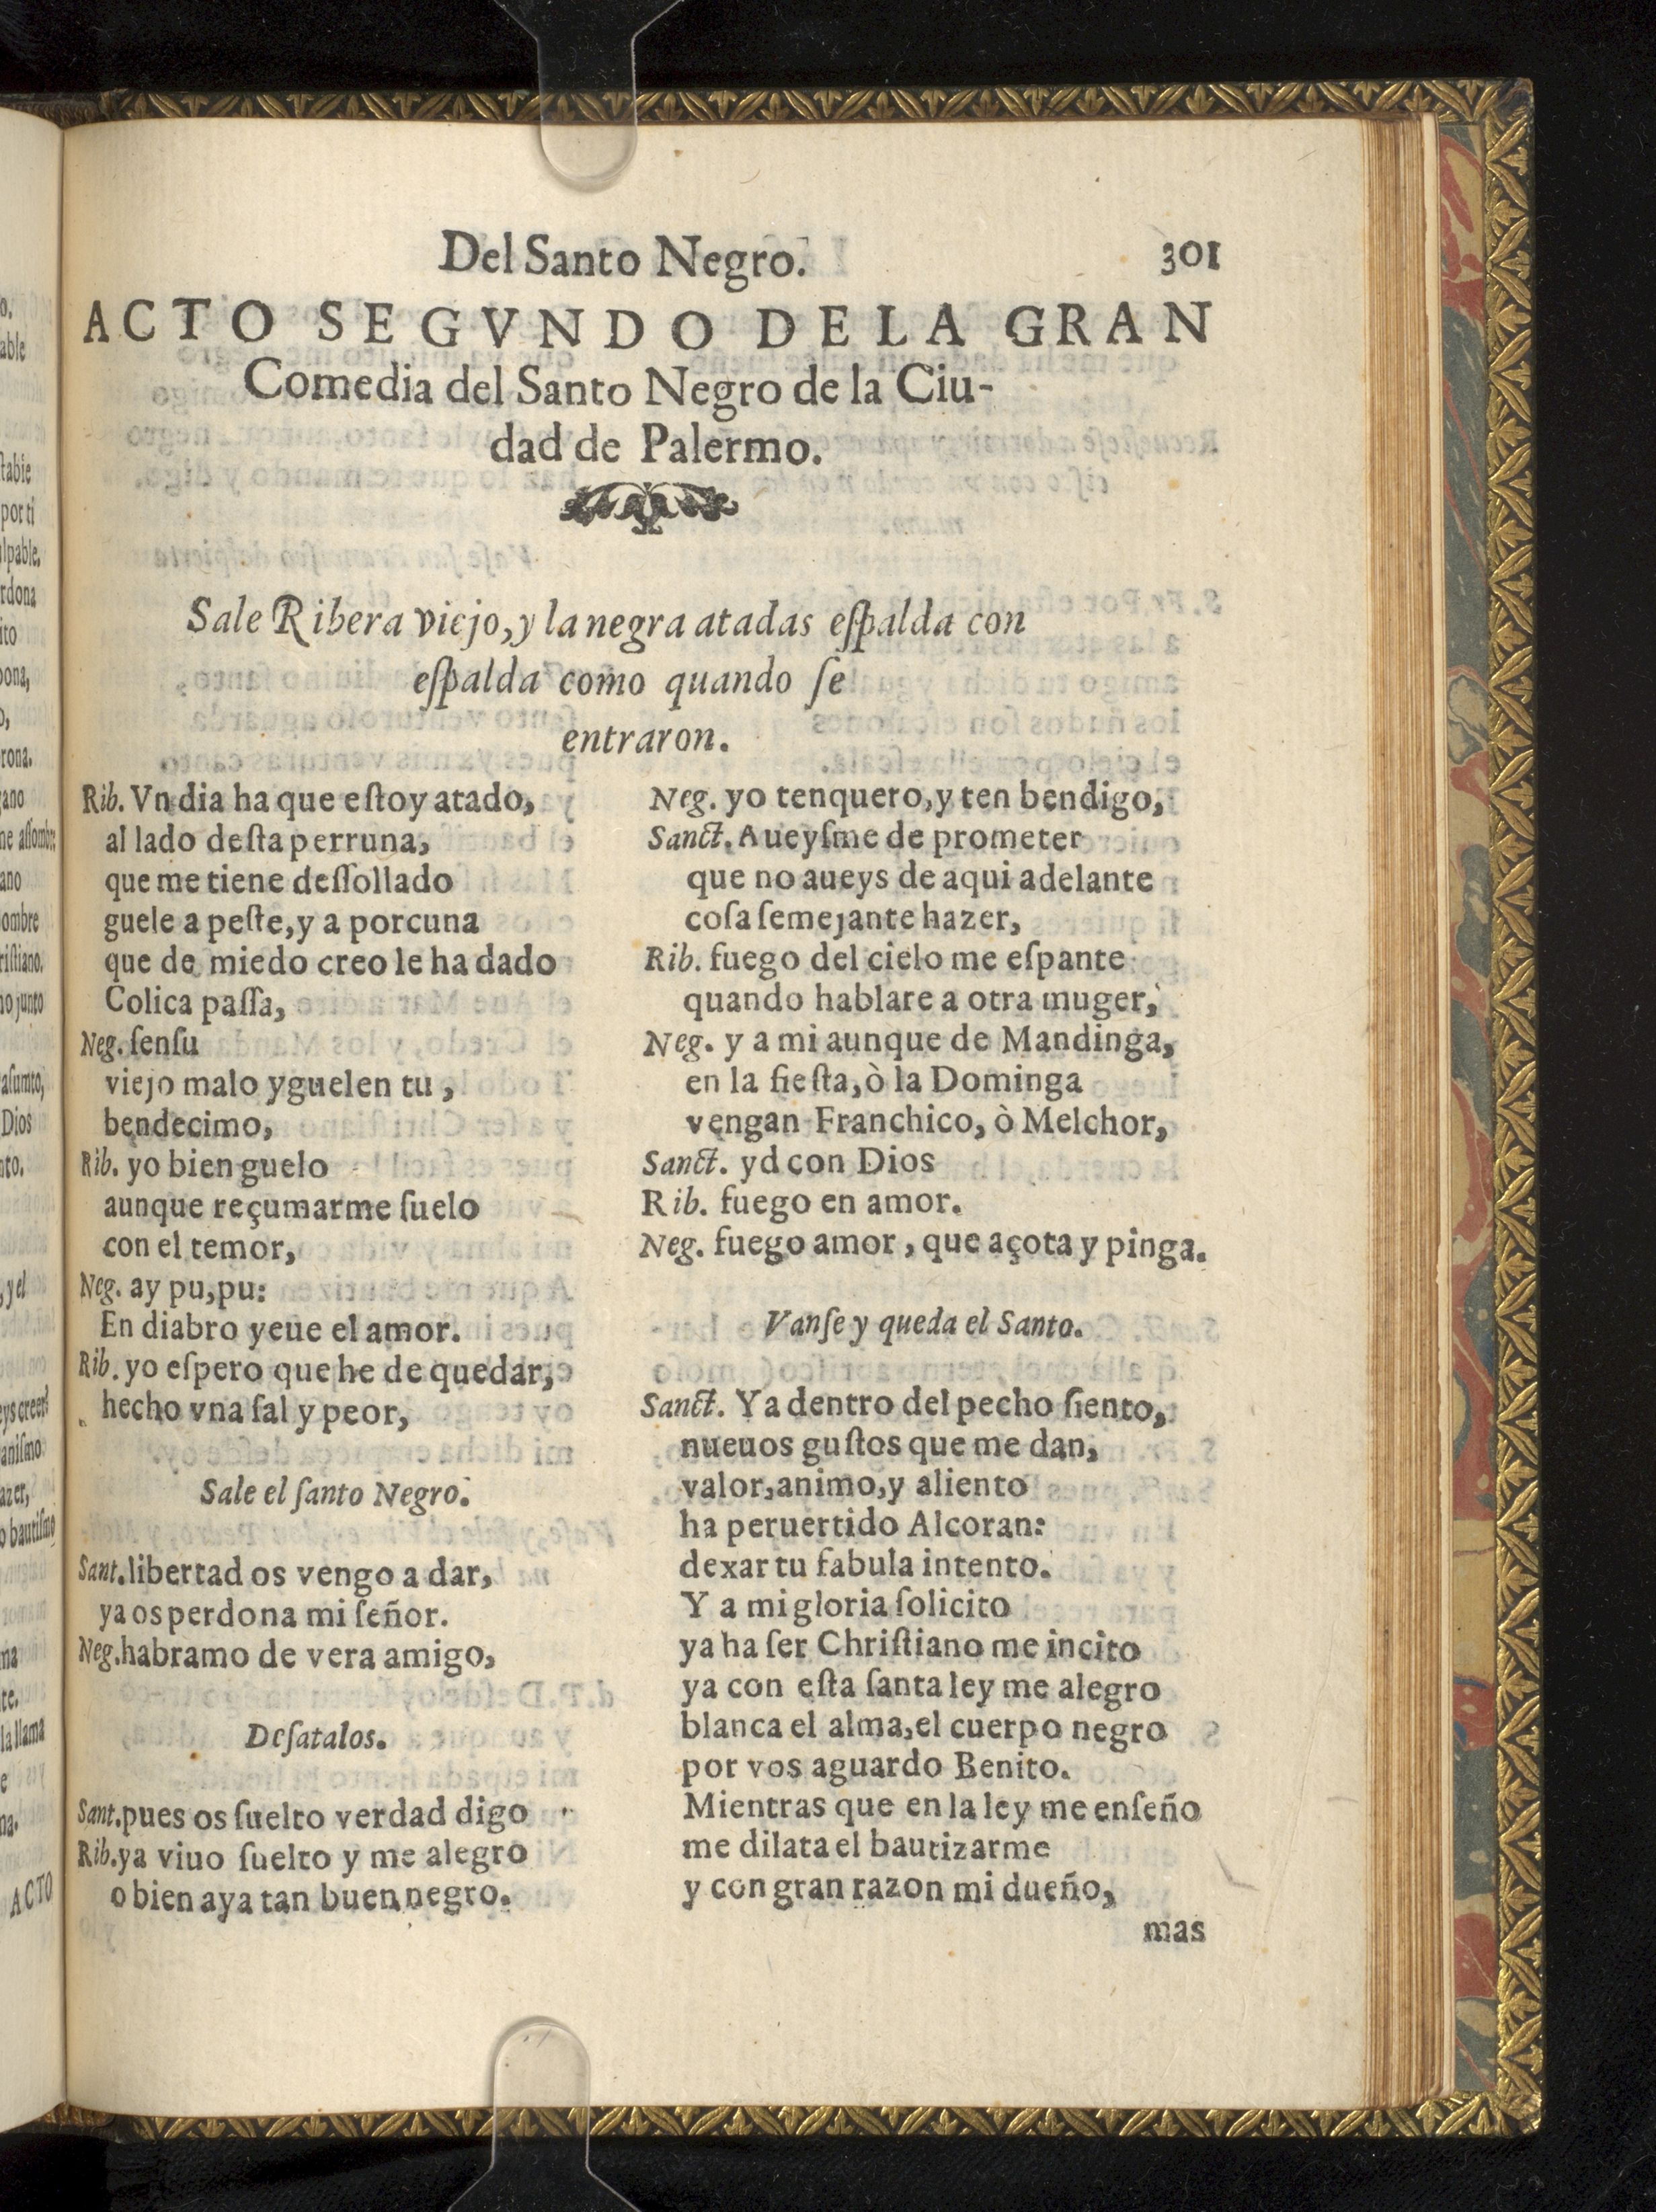 Del Santo Negro.
301
ACTO SEGVNDO DE LA GRAN
Comedia del Santo Negro de la Ciu-
dad de Palermo.
Sale Ribera viejo, y la negra atadas eſpalda con
eſpalda como quando ſe
entraron.
Rib. Vn dia ha que eſtoy atado,
al lado deſta perruna,
que me tiene deſſollado
guele a peſte, y a porcuna
que de miedo creo le ha dado
Colica paſſa,
Neg. ſenſu
viejo malo yguelen tu,
bendecimo,
Rib. yo bien guelo
aunque reçumarme ſuelo
con el temor,
Neg. ay pu, pu:
En diabro yeue el amor.
Rib. yo eſpero que he de quedar,
hecho vna ſal y peor,
Sale el ſanto Negro.
Sant. libertad os vengo a dar,
ya os perdona mi ſeñor.
Neg. habramo de vera amigo,
Deſatalos.
Sant. pues os ſuelto verdad digo
Rib. ya viuo ſuelto y me alegro
o bien aya tan buen negro.
Neg. yo tenquero, y ten bendigo,
Sanct. Aueyſme de prometer
que no aueys de aqui adelante
coſa ſemejante hazer,
Rib. fuego del cielo me eſpante
quando hablare a otra muger,
Neg. y a mi aunque de Mandinga,
en la fieſta, ò la Dominga
vengan Franchico, ò Melchor,
Sanct. yd con Dios
Rib. fuego en amor.
Neg. fuego amor, que açota y pinga.
Vanſe y queda el Santo.
Sanct. Ya dentro del pecho ſiento,
nueuos guſtos que me dan,
valor, animo, y aliento
ha peruertido Alcoran:
dexar tu fabula intento.
Y a mi gloria ſolicito
ya ha ſer Chriſtiano me incito
ya con eſta ſanta ley me alegro
blanca el alma, el cuerpo negro
por vos aguardo Benito.
Mientras que en la ley me enſeño
me dilata el bautizarme
y con gran razon mi dueño,
mas